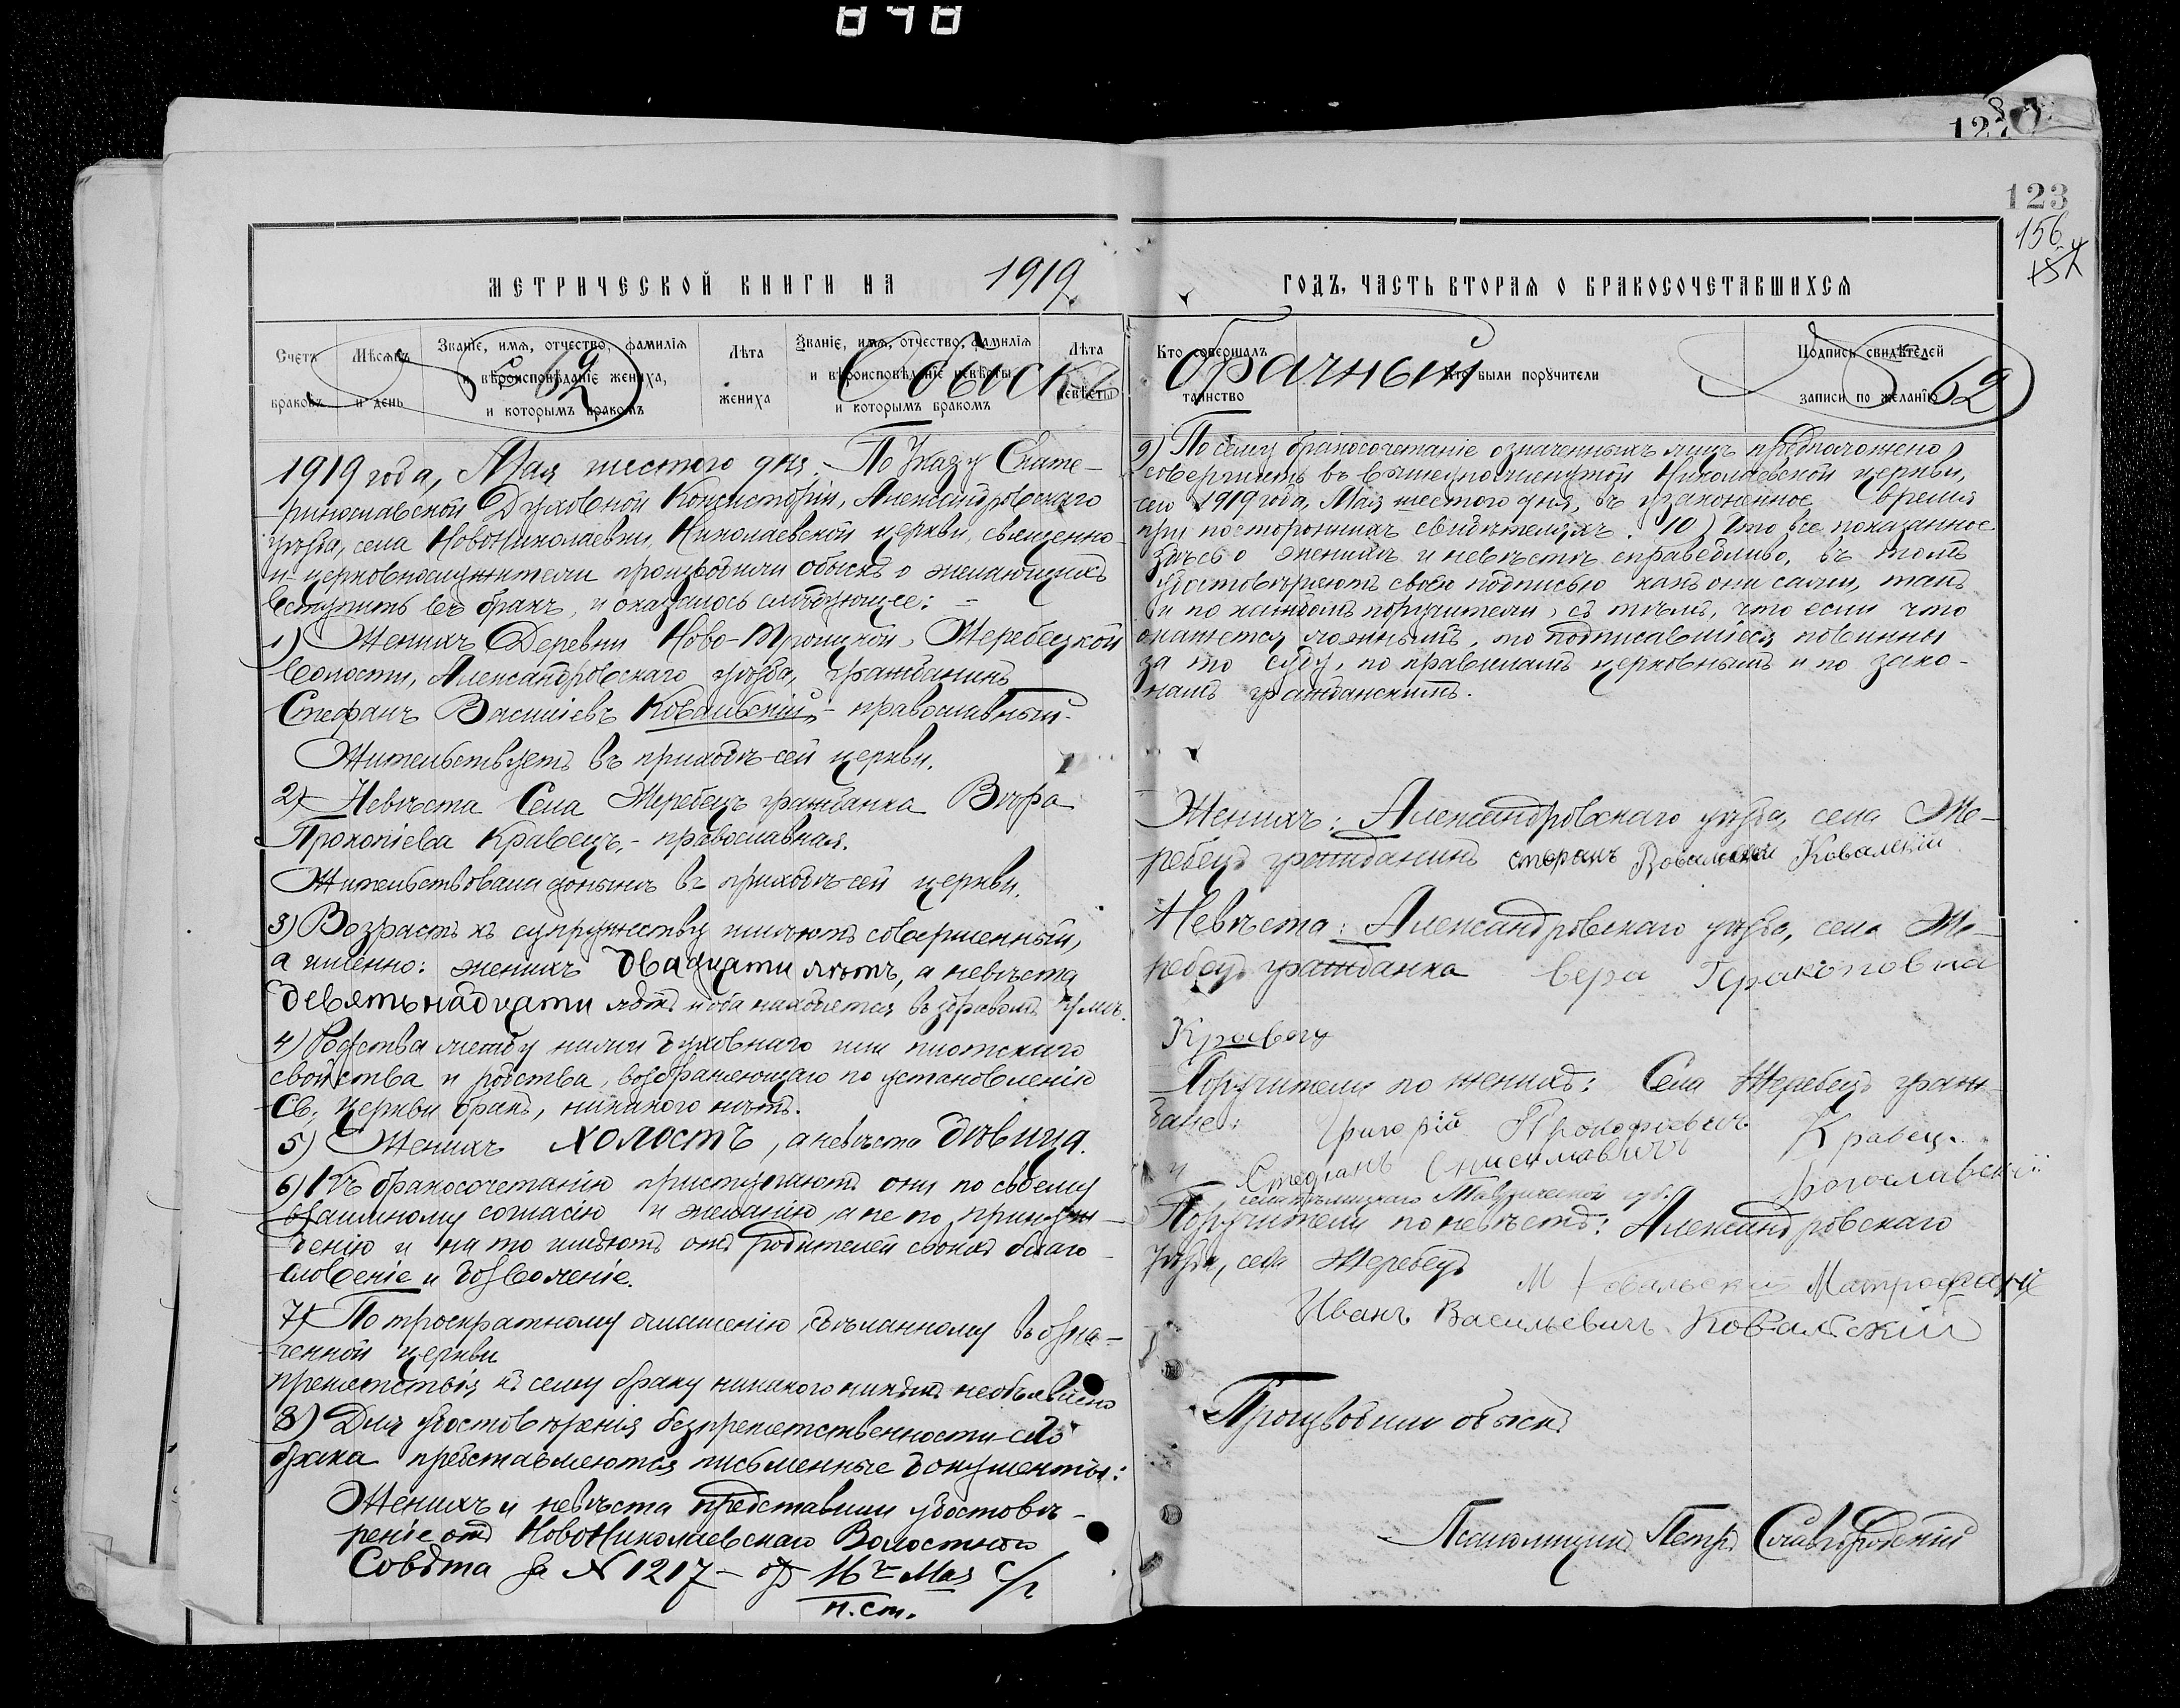 878
127
123
156
МЕТРИЧЕСКОЙ КНИГИ НА 1919
Счетъ браковъ
Мѣсяцъ и день
Званіе, имя, отчество, фамилія и вѣроисповѣданіе жениха, и которымъ бракомъ
Лѣта жениха
Званіе, имя, отчество, фамилія и вѣроисповѣданіе невѣсты и которымъ бракомъ
Лѣта невѣсты
62 Обыскъ
1919 года, Мая шестого дня. По Указу Екате-
ринославской Духовной Консисторіи, Александровскаго
уѣзда, села НовоНиколаевки, Николаевской церкви, священно-
и церковнослужители производили обыскъ о желающихъ
вступить въ бракъ, и оказалось слѣдующее: =
1) Женихъ Деревни Ново-Троицкой, Жеребецкой
волости, Александровскаго уѣзда, гражданинъ
Стефанъ Василіевъ Ковальскій, - православный.
Жительствуетъ въ приходѣ сей церкви.
2) Невѣста Села Жеребецъ гражданка Вѣра
Прокопіева Кравецъ, - православная.
Жительствовала донынѣ въ приходѣ сей церкви.
3) Возрастъ къ супружеству имѣютъ совершенный,
а именно: женихъ двадцати лѣтъ, а невѣста
девятьнадцати лѣтъ и оба находятся въ здравомъ умѣ.
4) Родства между ними духовнаго или плотскаго
свойства и родства, возбраняющаго по установленію
Св. Церкви бракъ, никакого нѣтъ.
5) Женихъ холостъ, а невѣста дѣвица.
6) Къ бракосочетанію приступаютъ они по своему
взаимному согласію и желанію, а не по принуж-
денію и на то имѣютъ отъ родителей своихъ благо-
словеніе и дозволеніе.
7) По троекратному оглашенію, сдѣланному въ озна-
ченной церкви
препятствія къ сему браку никакого никѣмъ необъявлено
8) Для удостовѣренія безпрепятственности сего
брака представляются письменные документы:
Женихъ и невѣста представили удостовѣ-
реніе отъ НовоНиколаевскаго Волостного
Совѣта за N 1217 - от 16го Мая с/г
н. ст.
ГОДЪ, ЧАСТЬ ВТОРАЯ О БРАКОСОЧЕТАВШИХСЯ
Кто совершалъ таинство
Кто были поручители
Подписи свидѣтелей записи по желанію
брачный 62
9) По сему бракосочетаніе означенныхъ лицъ предположено
совершить въ вышеупомянутой Николаевской церкви,
сего 1919 года, Мая шестого дня, въ узаконенное время
при постороннихъ свидѣтеляхъ. 10) Что все показанное
здѣсь о женихѣ и невѣстѣ справедливо, въ томъ
удостовѣряютъ своею подписью какъ они сами, такъ
и по каждомъ поручители, съ тѣмъ, что если что
окажется ложнымъ, то подписавшіеся повинны
за то суду, по правиламъ церковнымъ и по зако-
намъ гражданскимъ.
Женихъ: Александровскаго уѣзда, села Же-
ребецъ гражданинъ Ковалскій
Невѣста: Александровскаго уѣзда, села Же-
ребецъ гражданка Вера Пракоповна
Поручители по женихѣ: Села Жеребецъ граж-
дане: Григорій Прокофіевичъ Кравец.
и Стефанъ Богославскій
Таврической губ.
Поручители по невѣстѣ: Александровскаго
уѣзда, села Жеребецъ М Ковальскій Матрофаній
Иванъ Васильевичъ Ковалскій
Производили обыскъ
Псаломщикъ Петръ